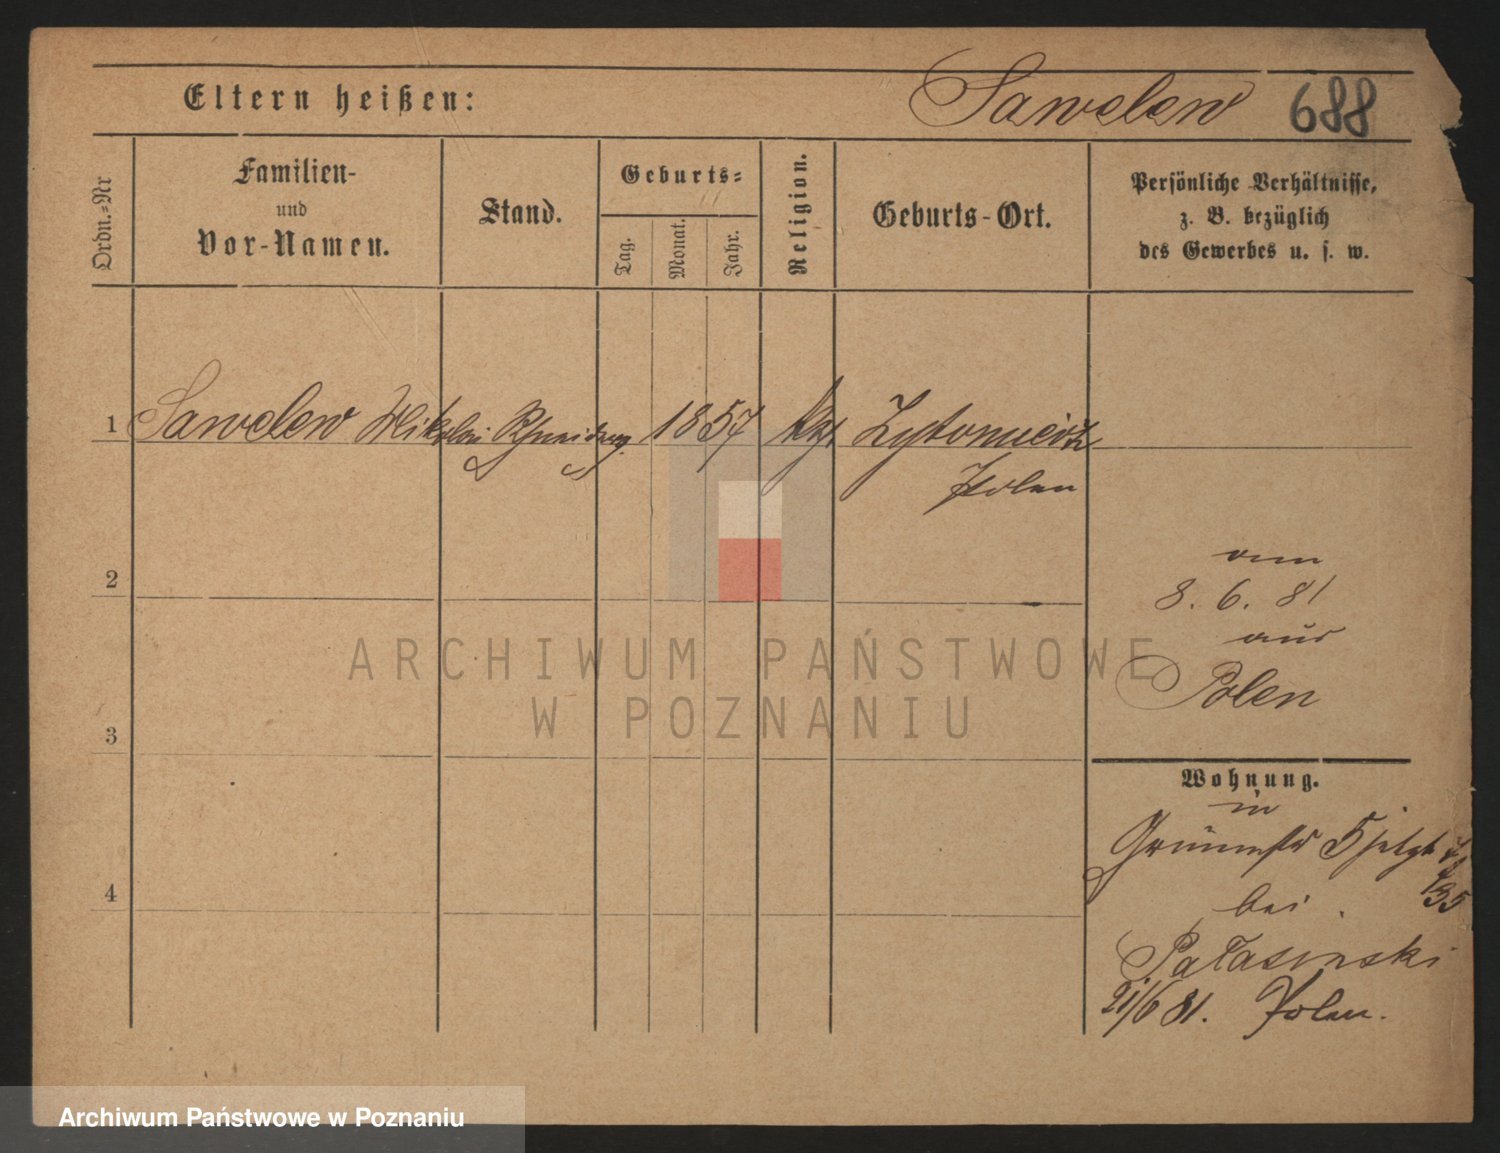 Eltern heißen: Sawelew 688
Ordn.=Nr
Familien-
und
Vor-Namen.
Stand.
Geburts=
Tag.
Monat.
Jahr.
Religion.
Geburts-Ort.
Persönliche Verhältnisse,
z. B. bezüglich
des Gewerbes u. s. w.
1 Sawelew Nikolai 1857
Polen
2
am
8. 6. 81
aus
Polen
3
Wohnung.
in
5
bei
4
Pałasinski
21/6 81. Polen.
ARCHIWUM PAŃSTWOWE
W POZNANIU
Archiwum Państwowe w Poznaniu